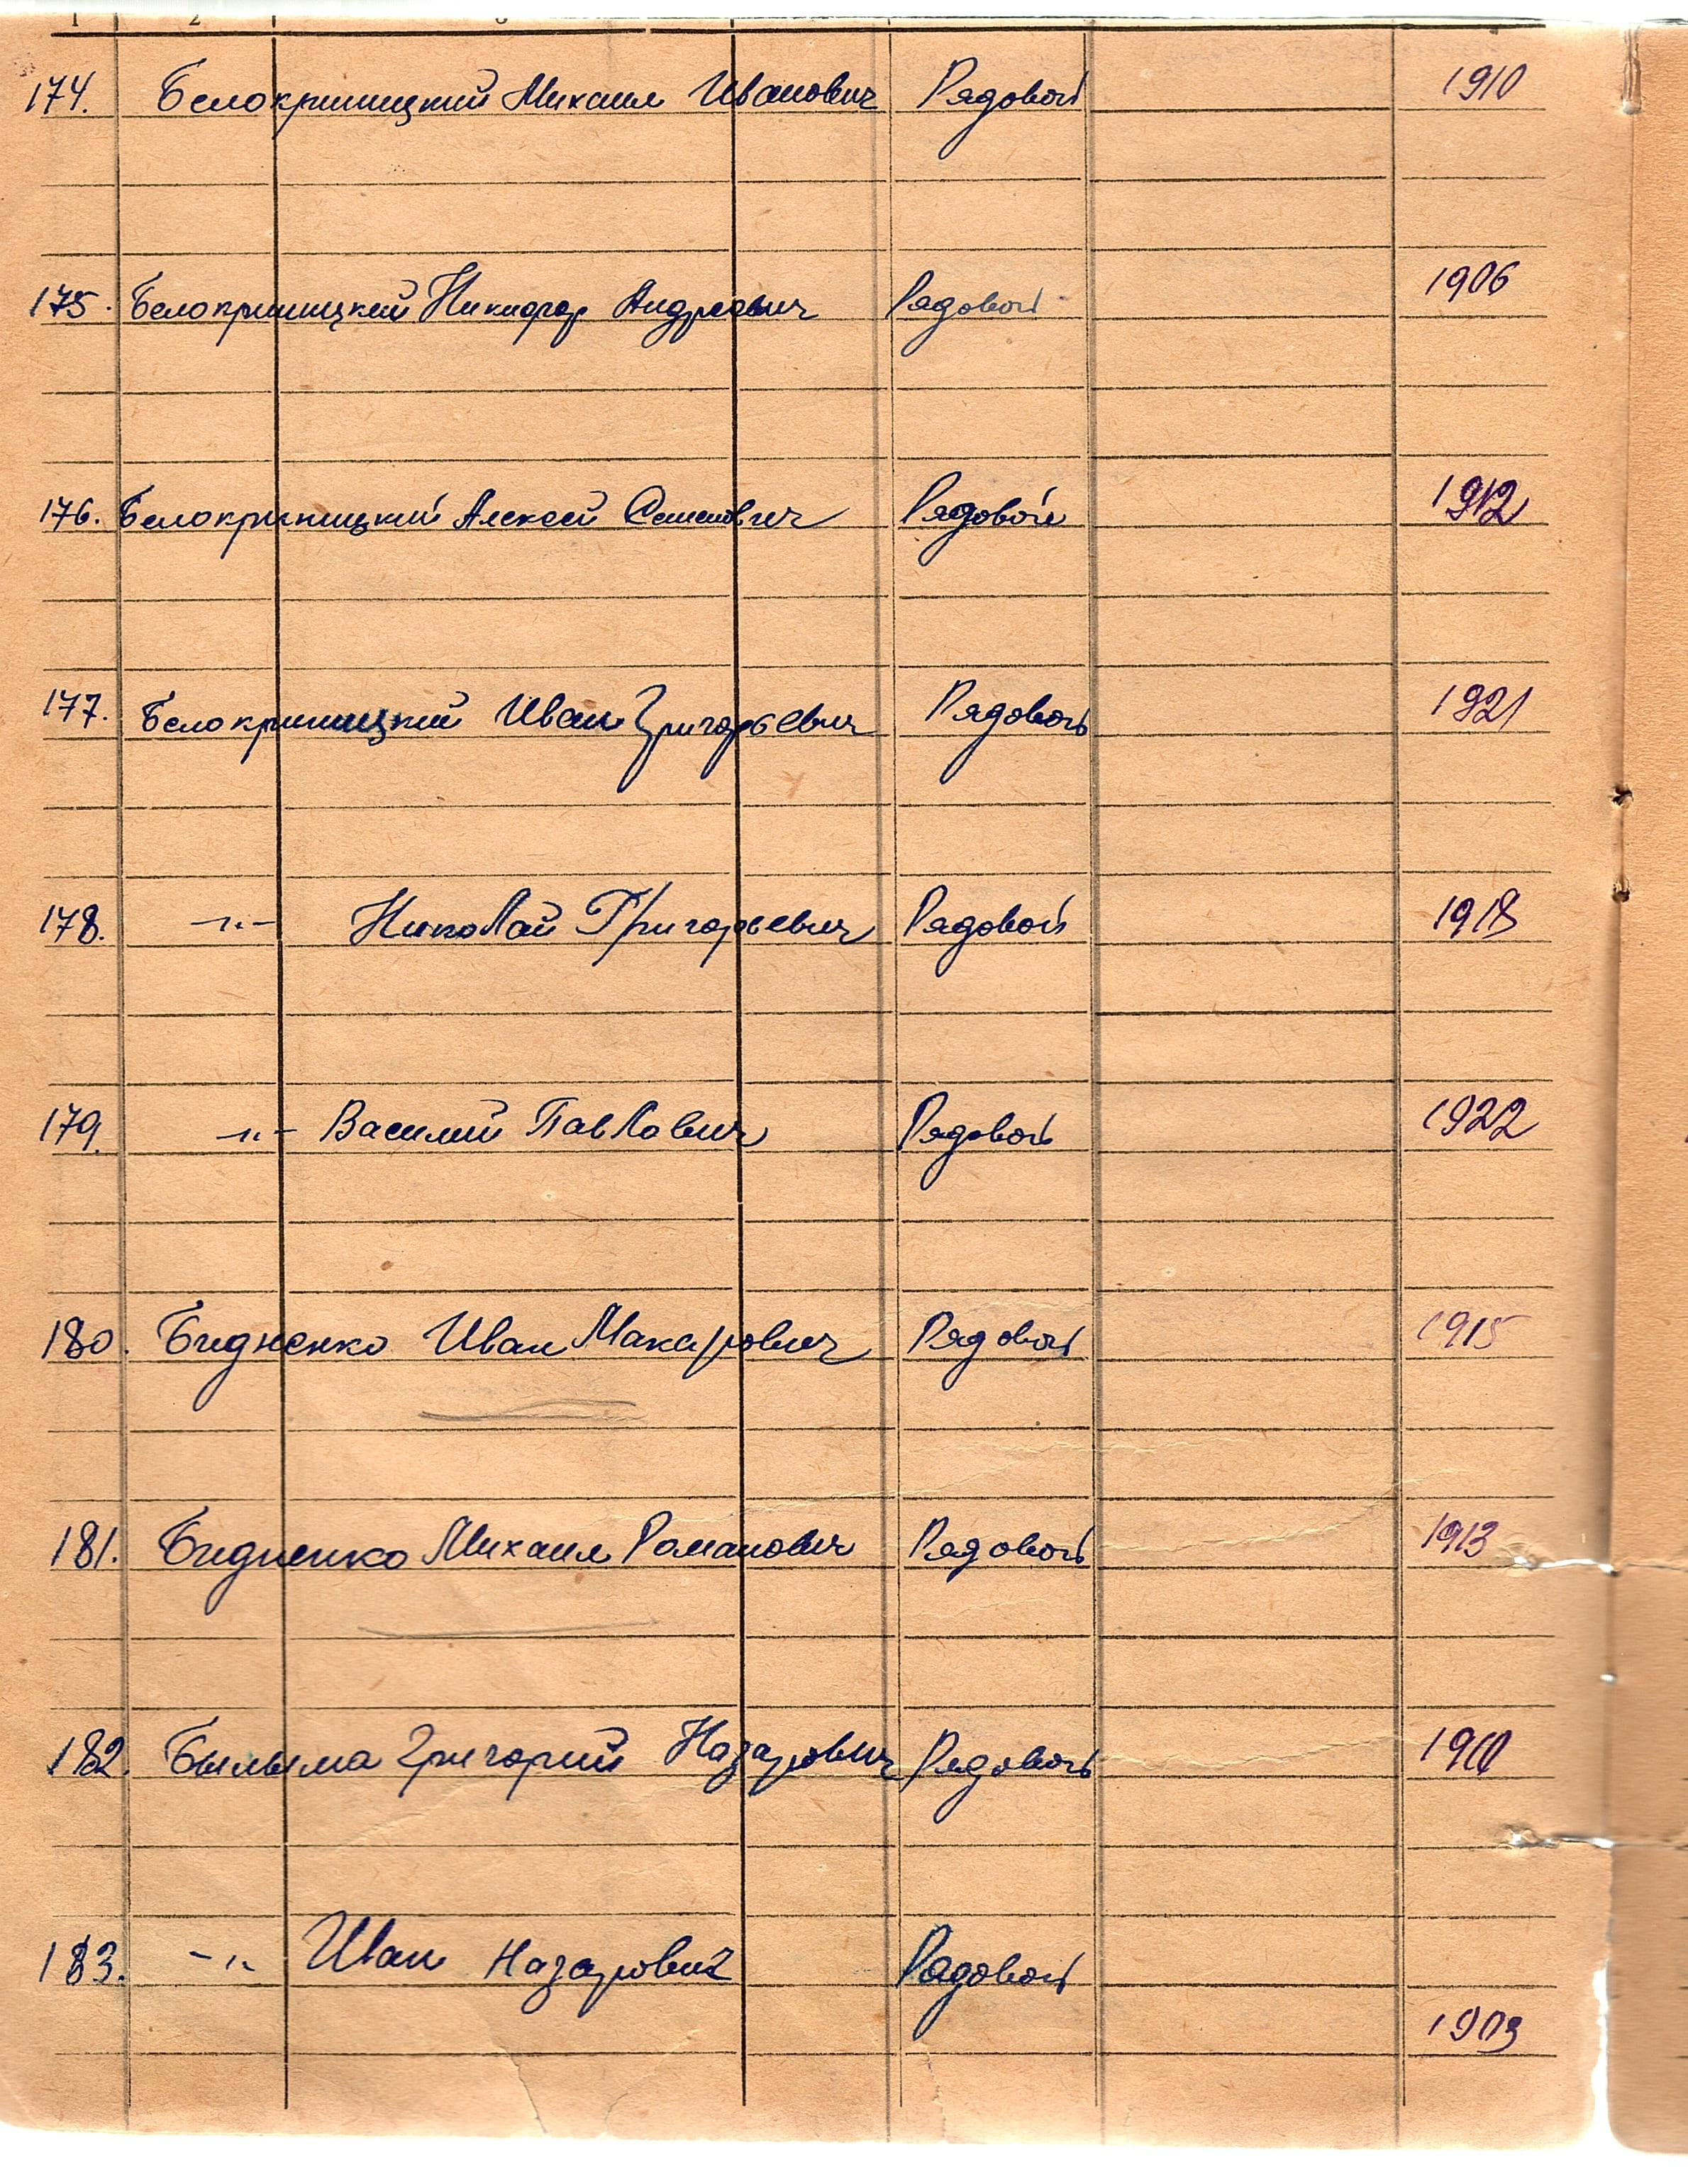 1 2 3
174. Белокриницкий Михаил Иванович Рядовой 1910
175. Белокриницкий Никифор Андреевич Рядовой 1906
176. Белокриницкий Алексей Семенович Рядовой 1912
177. Белокриницкий Иван Григорьевич Рядовой 1921
178. -"- Николай Григорьевич Рядовой 1918
179. -"- Василий Павлович Рядовой 1922
180. Бидненко Иван Макарович Рядовой 1915
181. Бидненко Михаил Романович Рядовой 1913
182. Былыма Григорий Назарович Рядовой
183. -"- Иван Назарович Рядовой
1903